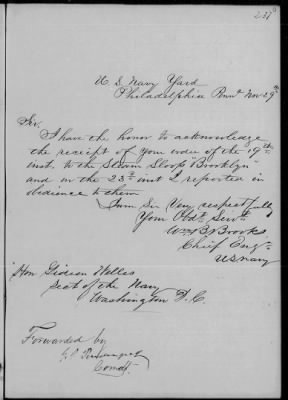 U. S. Navy Yard
Philadelphia Penna Nov 29th
Sir,
I have the honor to acknowledge
the receipt of your order of the 19th
inst. to the Steam Sloop "Brooklyn"
and on the 23d inst I reported in
obedience to them
I am Sir Very respectfully
Your Obdt Servt
Wm B Brooks
Chief Engr
US Navy
Hon Gideon Welles
Sect of the Navy
Washington D. C.
Forwarded by
Comdt